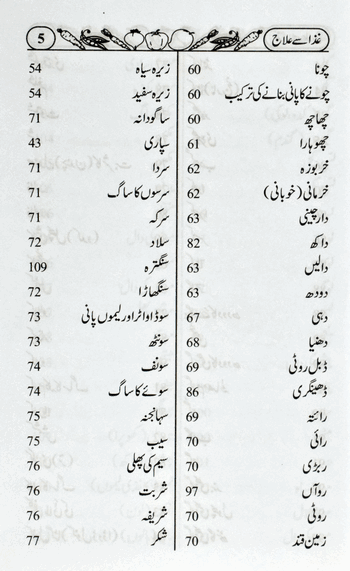 غذا سے علاج
5
چونا 60
چونے کا پانی بنانے کی ترکیب 60
چھاچھ 60
چھوہارا 61
خربوزہ 62
خرمانی (خوبانی) 62
دار چینی 63
داکھ 82
دالیں 63
دودھ 63
دہی 67
دھنیا 68
ڈبل روٹی 69
ڈھینگری 86
رائتہ 69
رائی 70
ربڑی 70
رواں 97
روٹی 70
زمین قند 70
زیرہ سیاہ 54
زیرہ سفید 54
ساگودانہ 71
سپاری 43
سردا 71
سرسوں کا ساگ 71
سرکہ 71
سلاد 72
سنگترہ 109
سنگھاڑا 72
سوڈا واٹر اور لیموں پانی 73
سونٹھ 73
سونف 74
سوئے کا ساگ 74
سہانجنہ 75
سیب 75
سیم کی پھلی 76
شربت 76
شریفہ 76
شکر 77